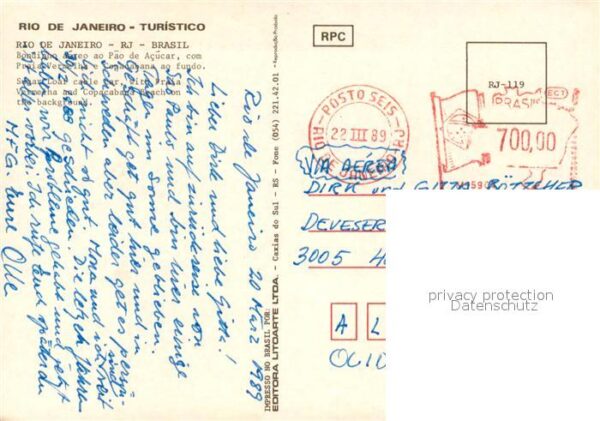 RIO DE JANEIRO - TURÍSTICO
RIO DE JANEIRO - RJ - BRASIL
Bondinho Aéreo ao Pão de Açúcar, com
Praia Vermelha e Copacabana ao fundo.
Sugar Loaf cable car, with Praia
Vermelha and Copacabana Beach on
the background.
Rio de Janeiro 20 März 1989
Liebe Dirk und liebe Gitta!
Ich bin auf zurückreise von
São Paulo und bin hier einige
Tagen in Sonne geblieben.
Geschäft get gut hier und in
Schweden aber leider get es
nicht so gut. Mona und ich
geschieden. Die letzte Jahren
wir Probleme gehabt und jetzt
vorbei. Ich rufe Euch später an
MfG Eure Olle
IMPRESSO NO BRASIL POR:
EDITORA LITOARTE LTDA. - Caxias do Sul - RS - Fone (054) 221.42.01 - Reprodução Proibida
RPC
RJ-119
POSTO SEIS
22 III 89
RIO DE JANEIRO
BRASIL
700,00
VIA AEREA
DIRK und GITTA BÖTTCHER
DEVESER
3005
A L
privacy protection
Datenschutz